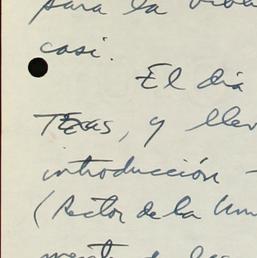 para la
casi.
El día
Texas, y
introducción -
(Rector de la Uni